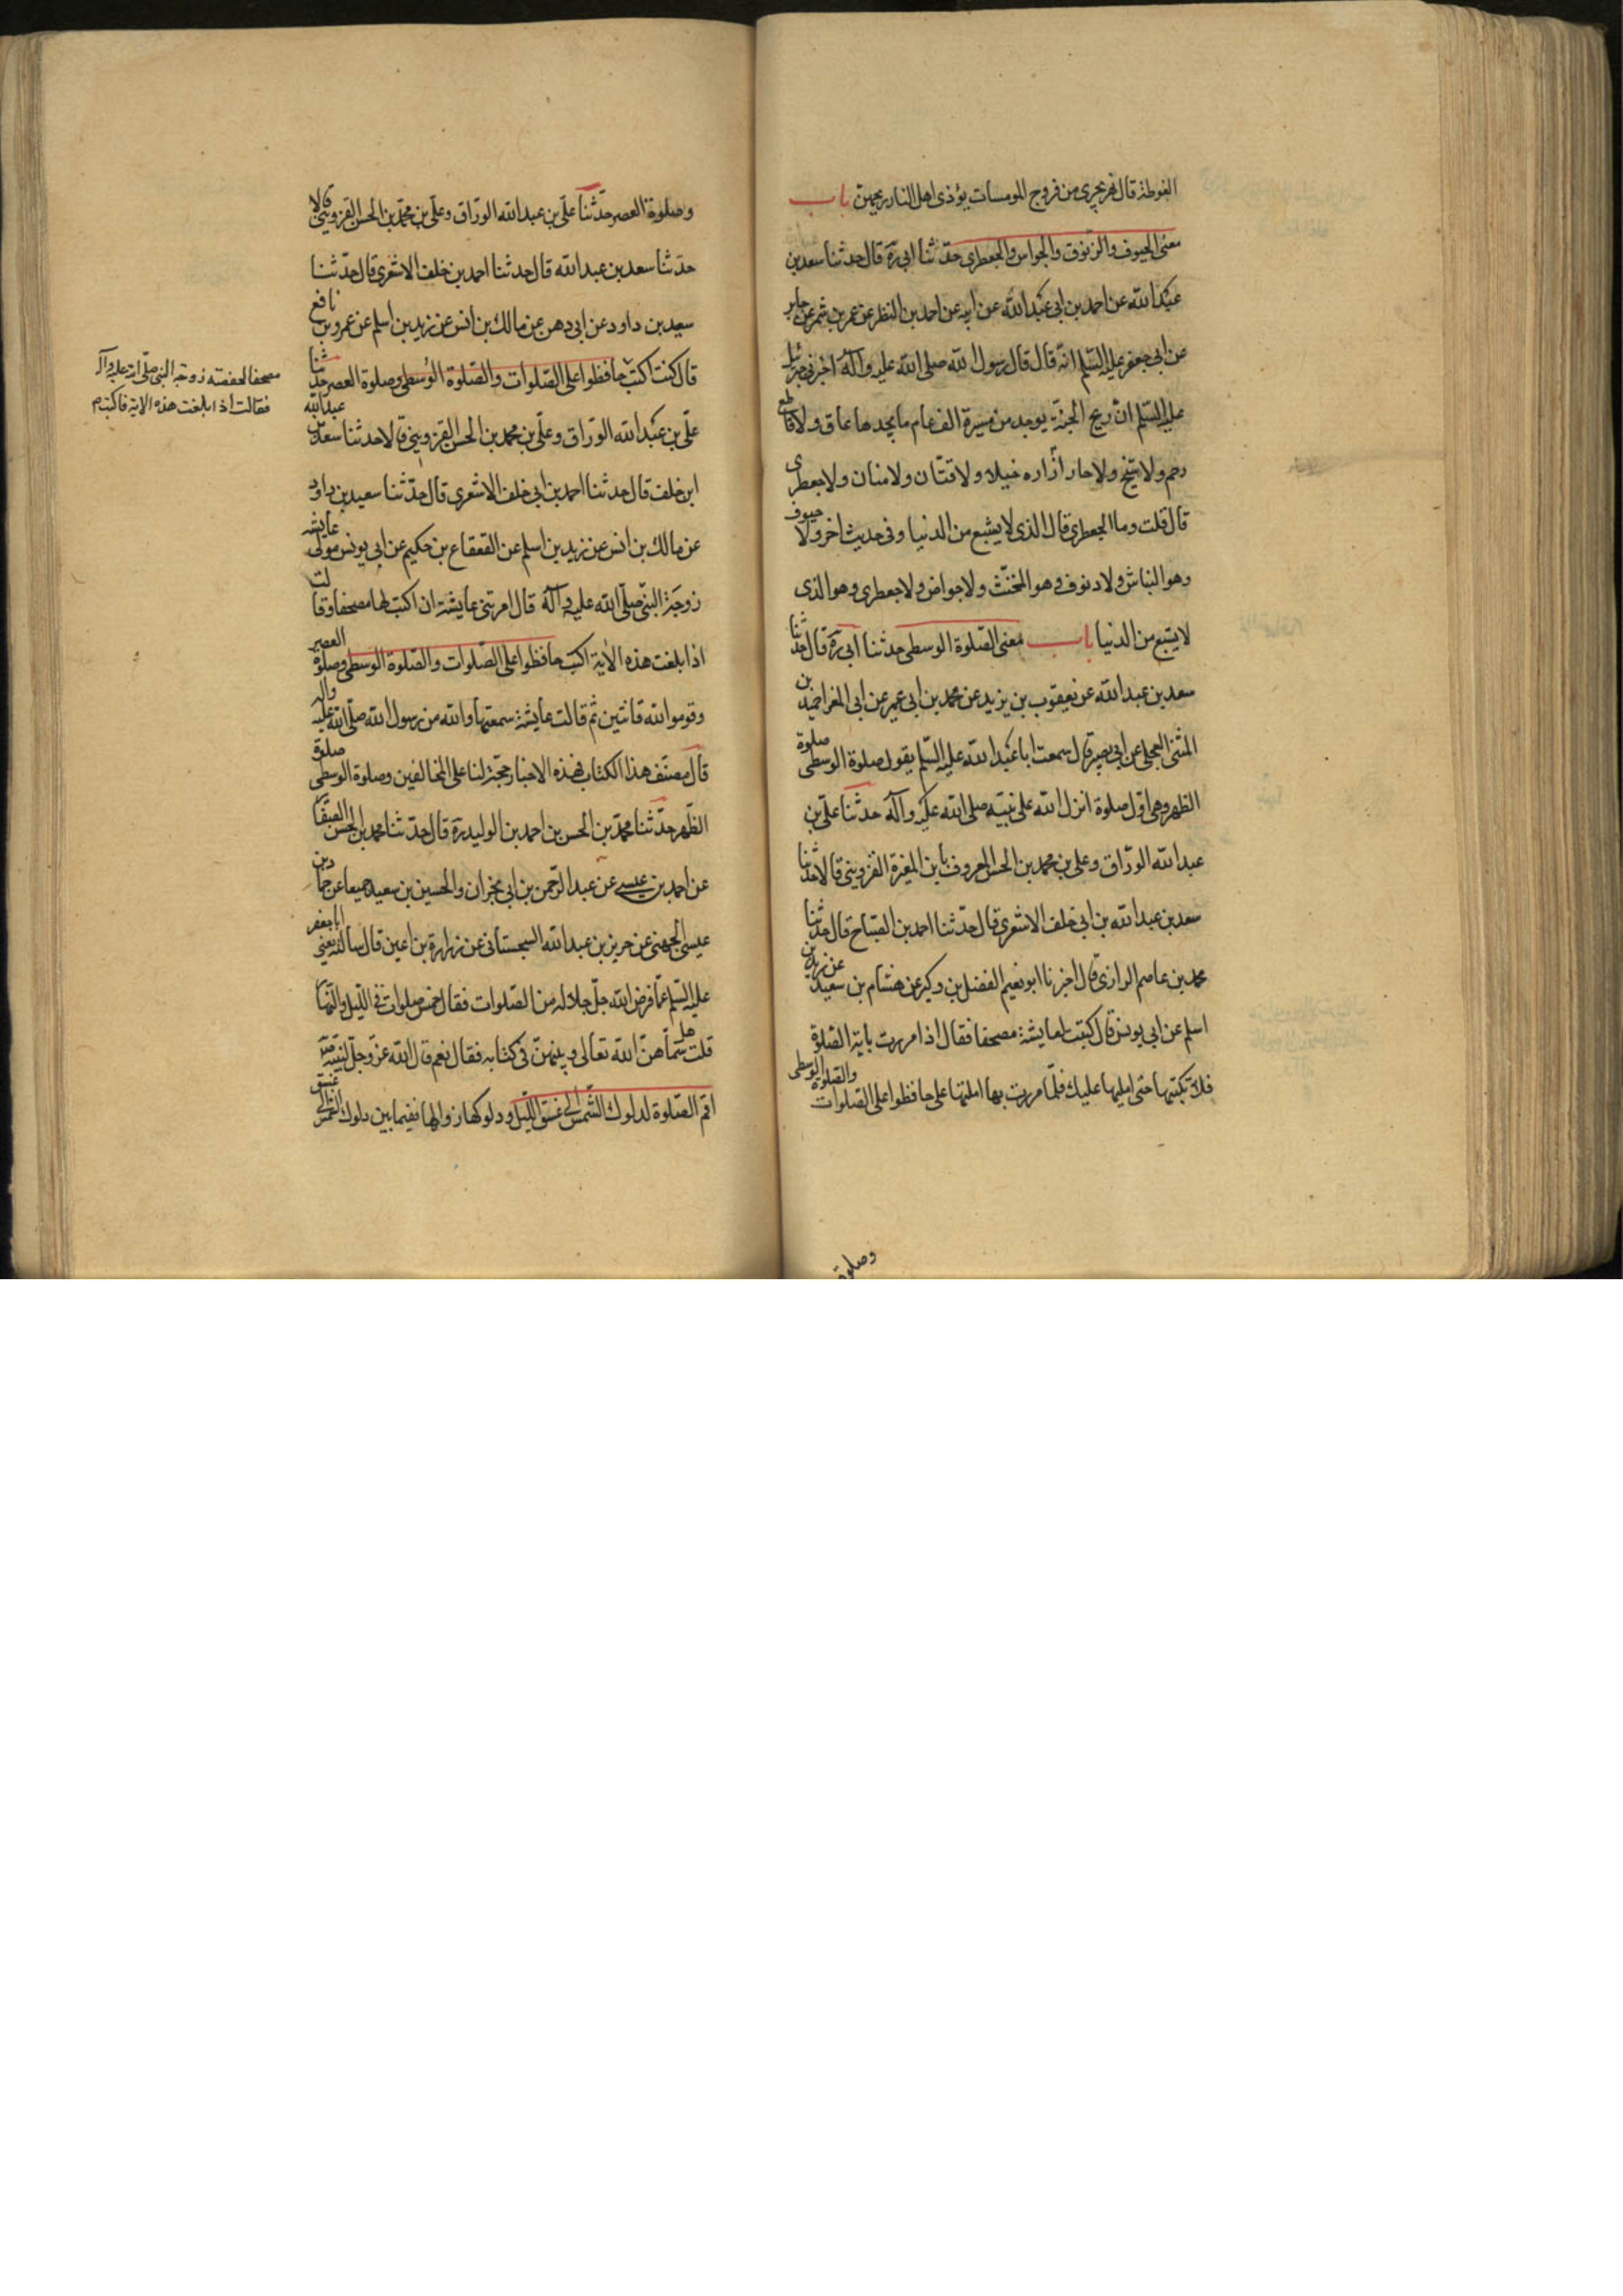 الغوطة قال نهر يجرى من فروج المومسات يؤذى اهل النار ريحهن باب
معنى الحيوف والزنوق والجواس والجعطرى حدثنا ابى ره قال حدثنا سعد بن
عبد الله عن احمد بن ابى عبد الله عن ابيه عن احمد بن النظر عن عمر بن شمر عن جابر
عن ابى جعفر عليه السلم انه قال قال رسول الله صلى الله عليه وآله اخبرنى جبرئيل
عليه السلم ان ريح الجنة يوجد من مسيرة الف عام ما يجدها عاق ولا قاطع
رحم ولا شيخ ولا جار ازاره خيلاء ولا قتات ولا منان ولا جعطرى
قال قلت وما الجعطرى قال الذى لا يشبع من الدنيا وفى حديث اخر ولا حيوف
وهو النباش ولا دنوف وهو المخنث ولا جواض ولا جعطرى وهو الذى
لا يشبع من الدنيا باب معنى الصلوة الوسطى حدثنا ابى ره قال حدثنا
سعد بن عبد الله عن يعقوب بن يزيد عن محمد بن ابى عمير عن ابى المغرا حميد بن
المثنى العجلى عن ابى بصير قال سمعت ابا عبد الله عليه السلم يقول صلوة الوسطى صلوة
الظهر وهى اول صلوة انزل الله على نبيه صلى الله عليه وآله حدثنا على بن
عبد الله الوراق وعلى بن محمد بن الحسن المعروف بابن المغيرة القزوينى قالا حدثنا
سعد بن عبد الله بن ابى خلف الاشعرى قال حدثنا احمد بن الصباح قال حدثنا
محمد بن عاصم الرازى قال اخبرنا ابو نعيم الفضل بن وكير عن هشام بن سعيد عن زيد بن
اسلم عن ابى يونس قال كتبت لعايشة مصحفا فقال اذا مررت باية الصلوة
فلا تكتبها حتى امليها عليك فلما مررت بها املتها على حافظوا على الصلوات والصلوة الوسطى
وصلوة
وصلوة العصر حدثنا على بن عبد الله الوراق وعلى بن محمد بن الحسن القزوينى قالا
حدثنا سعد بن عبد الله قال حدثنا احمد بن خلف الاشعرى قال حدثنا
سعيد بن داود عن ابى دهن عن مالك بن انس عن زيد بن اسلم عن عمرو بن نافع
قال كنت اكتب حافظوا على الصلوات والصلوة الوسطى وصلوة العصر حدثنا
على بن عبد الله الوراق وعلى بن محمد بن الحسن القزوينى قالا حدثنا سعد بن عبد الله
ابن خلف قال حدثنا احمد بن ابى خلف الاشعرى قال حدثنا سعيد بن داود
عن مالك بن انس عن زيد بن اسلم عن القعقاع بن حكيم عن ابى يونس مولى عايشه
زوجة النبى صلى الله عليه وآله قال امرتنى عايشة ان اكتب لها مصحفا وقالت
اذا بلغت هذه الاية اكتب حافظوا على الصلوات والصلوة الوسطى وصلوة العصر
وقوموا لله قانتين ثم قالت عايشة سمعتها والله من رسول الله صلى الله عليه واله
قال مصنف هذا الكتاب فهذه الاخبار حجة لنا على المخالفين وصلوة الوسطى صلوة
الظهر حدثنا محمد بن الحسن بن احمد بن الوليد ره قال حدثنا محمد بن الحسن الصفار
عن احمد بن عيسى عن عبد الرحمن بن ابى نجران والحسين بن سعيد جميعا عن حماد بن
عيسى الجهنى عن حريز بن عبد الله السجستانى عن زرارة بن اعين قال سالته يعنى ابا جعفر
عليه السلم عما فرض الله جل جلاله من الصلوات فقال خمس صلوات فى الليل والنهار
قلت هل سماهن الله تعالى وبينهن فى كتابه فقال نعم قال الله عز وجل لنبيه ص
اقم الصلوة لدلوك الشمس الى غسق الليل ودلوكها زوالها ففيما بين دلوك الشمس الى غسق
مصحفا لحفصه زوجة النبى صلى الله عليه وآله
فقالت اذا بلغت هذه الاية فاكتب م